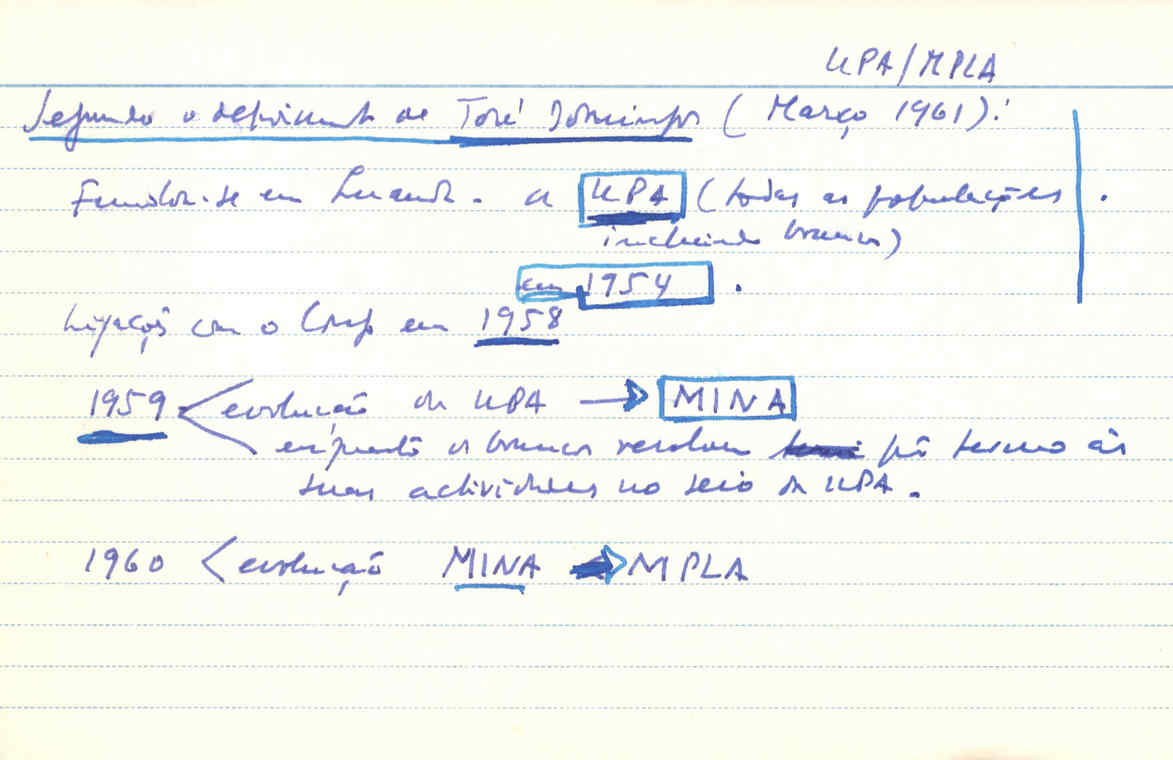 UPA/MPLA
Segundo o depoimento de José Domingos (Março 1961):
Fundou-se em Luanda. a UPA (todas as populações
incluindo brancos)
em 1954.
Ligação com o Congo em 1958
1959 < evolução da UPA → MINA
enquanto os brancos resolvem pôr termo às
suas actividades no seio da UPA.
1960 < evolução MINA → MPLA